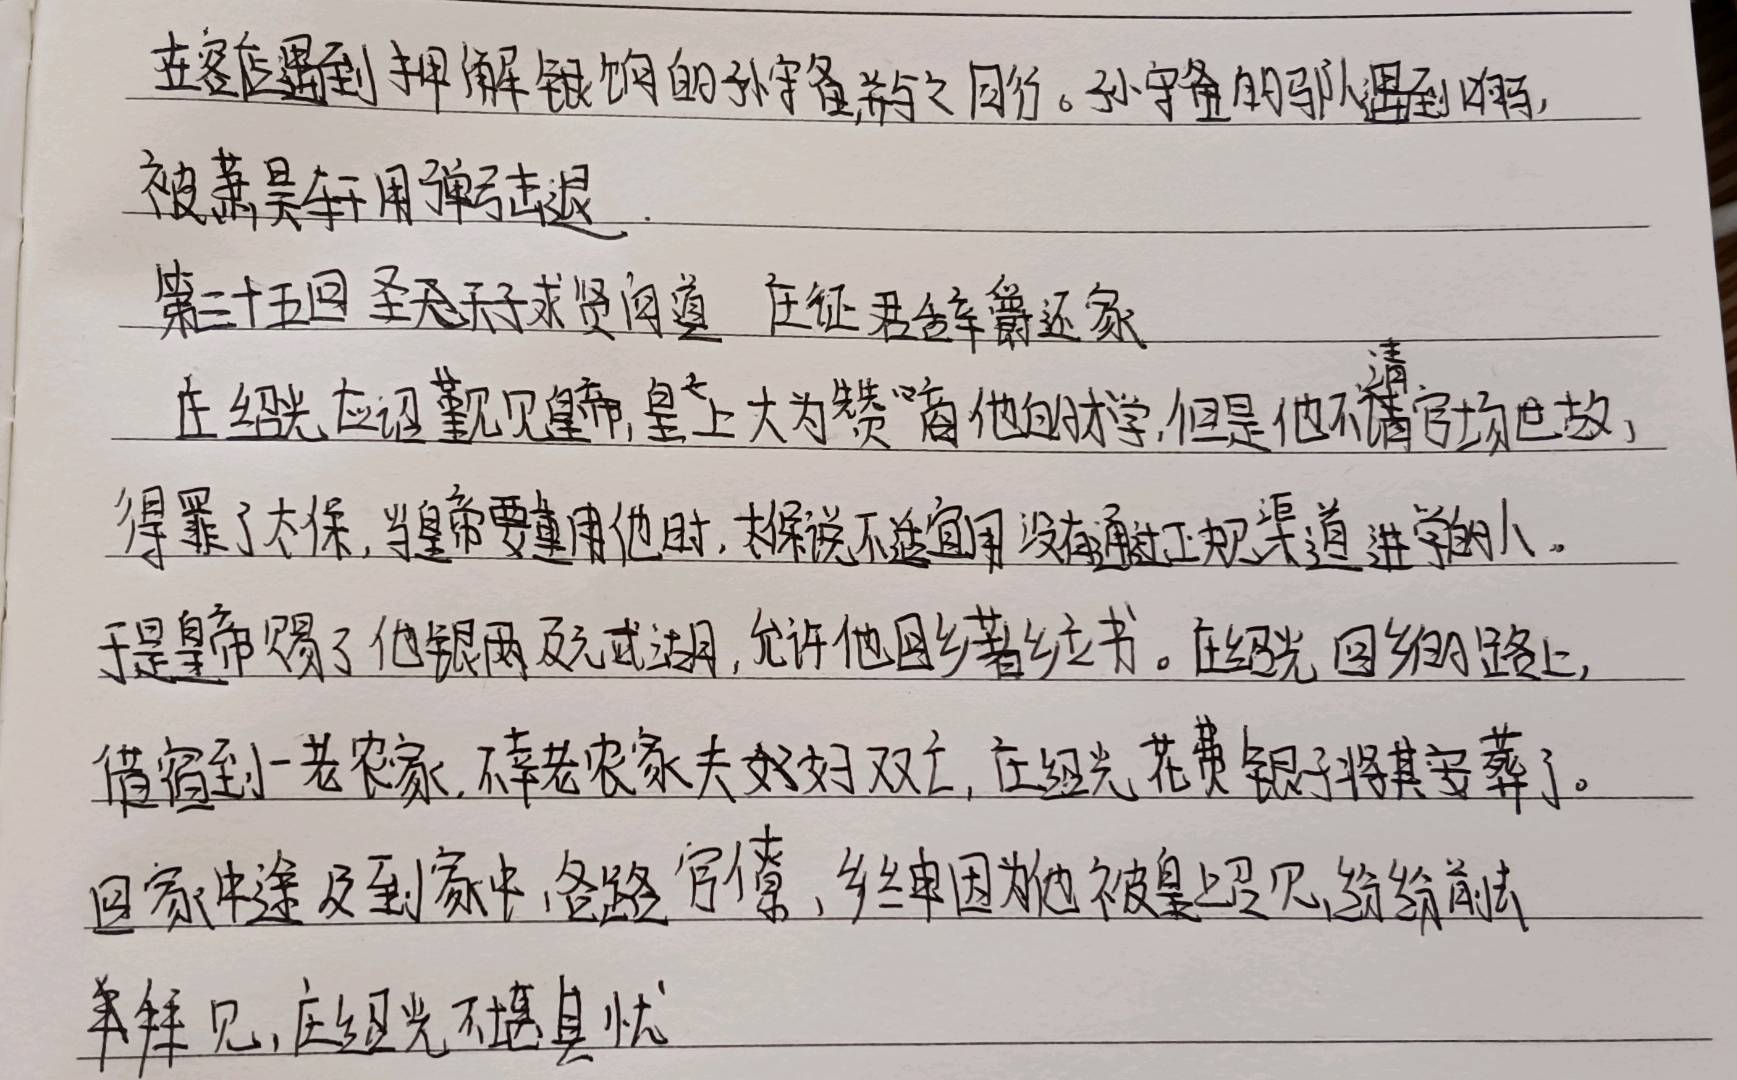 在客店遇到押解银饷的孙守备,并与之同行。孙守备的马队遇到响马,
被萧昊轩用弹弓击退.
第三十五回 圣天子求贤问道 庄征君辞爵还家
庄绍光应诏觐见皇帝,皇上大为赞赏他的才学,但是他不清官场世故,
得罪了太保,当皇帝要重用他时,太保说不适宜用没有通过正规渠道进学的人。
于是皇帝赐了他银两及元武湖,允许他回乡著书立书。庄绍光回乡的路上,
借宿到一老农家,不幸老农家夫妇双亡,庄绍光花费银子将其安葬了。
回家中途及到家中,各路官僚,乡绅因为他被皇上召见,纷纷前去
拜见,庄绍光不堪其忧